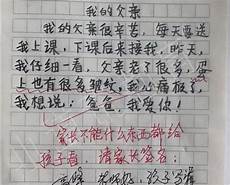 我的父亲
我的父亲很辛苦，每天要送
我上课，下课后来接我，昨天，
我仔细一看，父亲老了很多，蛋
上也有很多皱纹，我心痛极了，
我想说：爸爸，我爱你！
家长不能什么东西都给
孩子看，请家长签名：